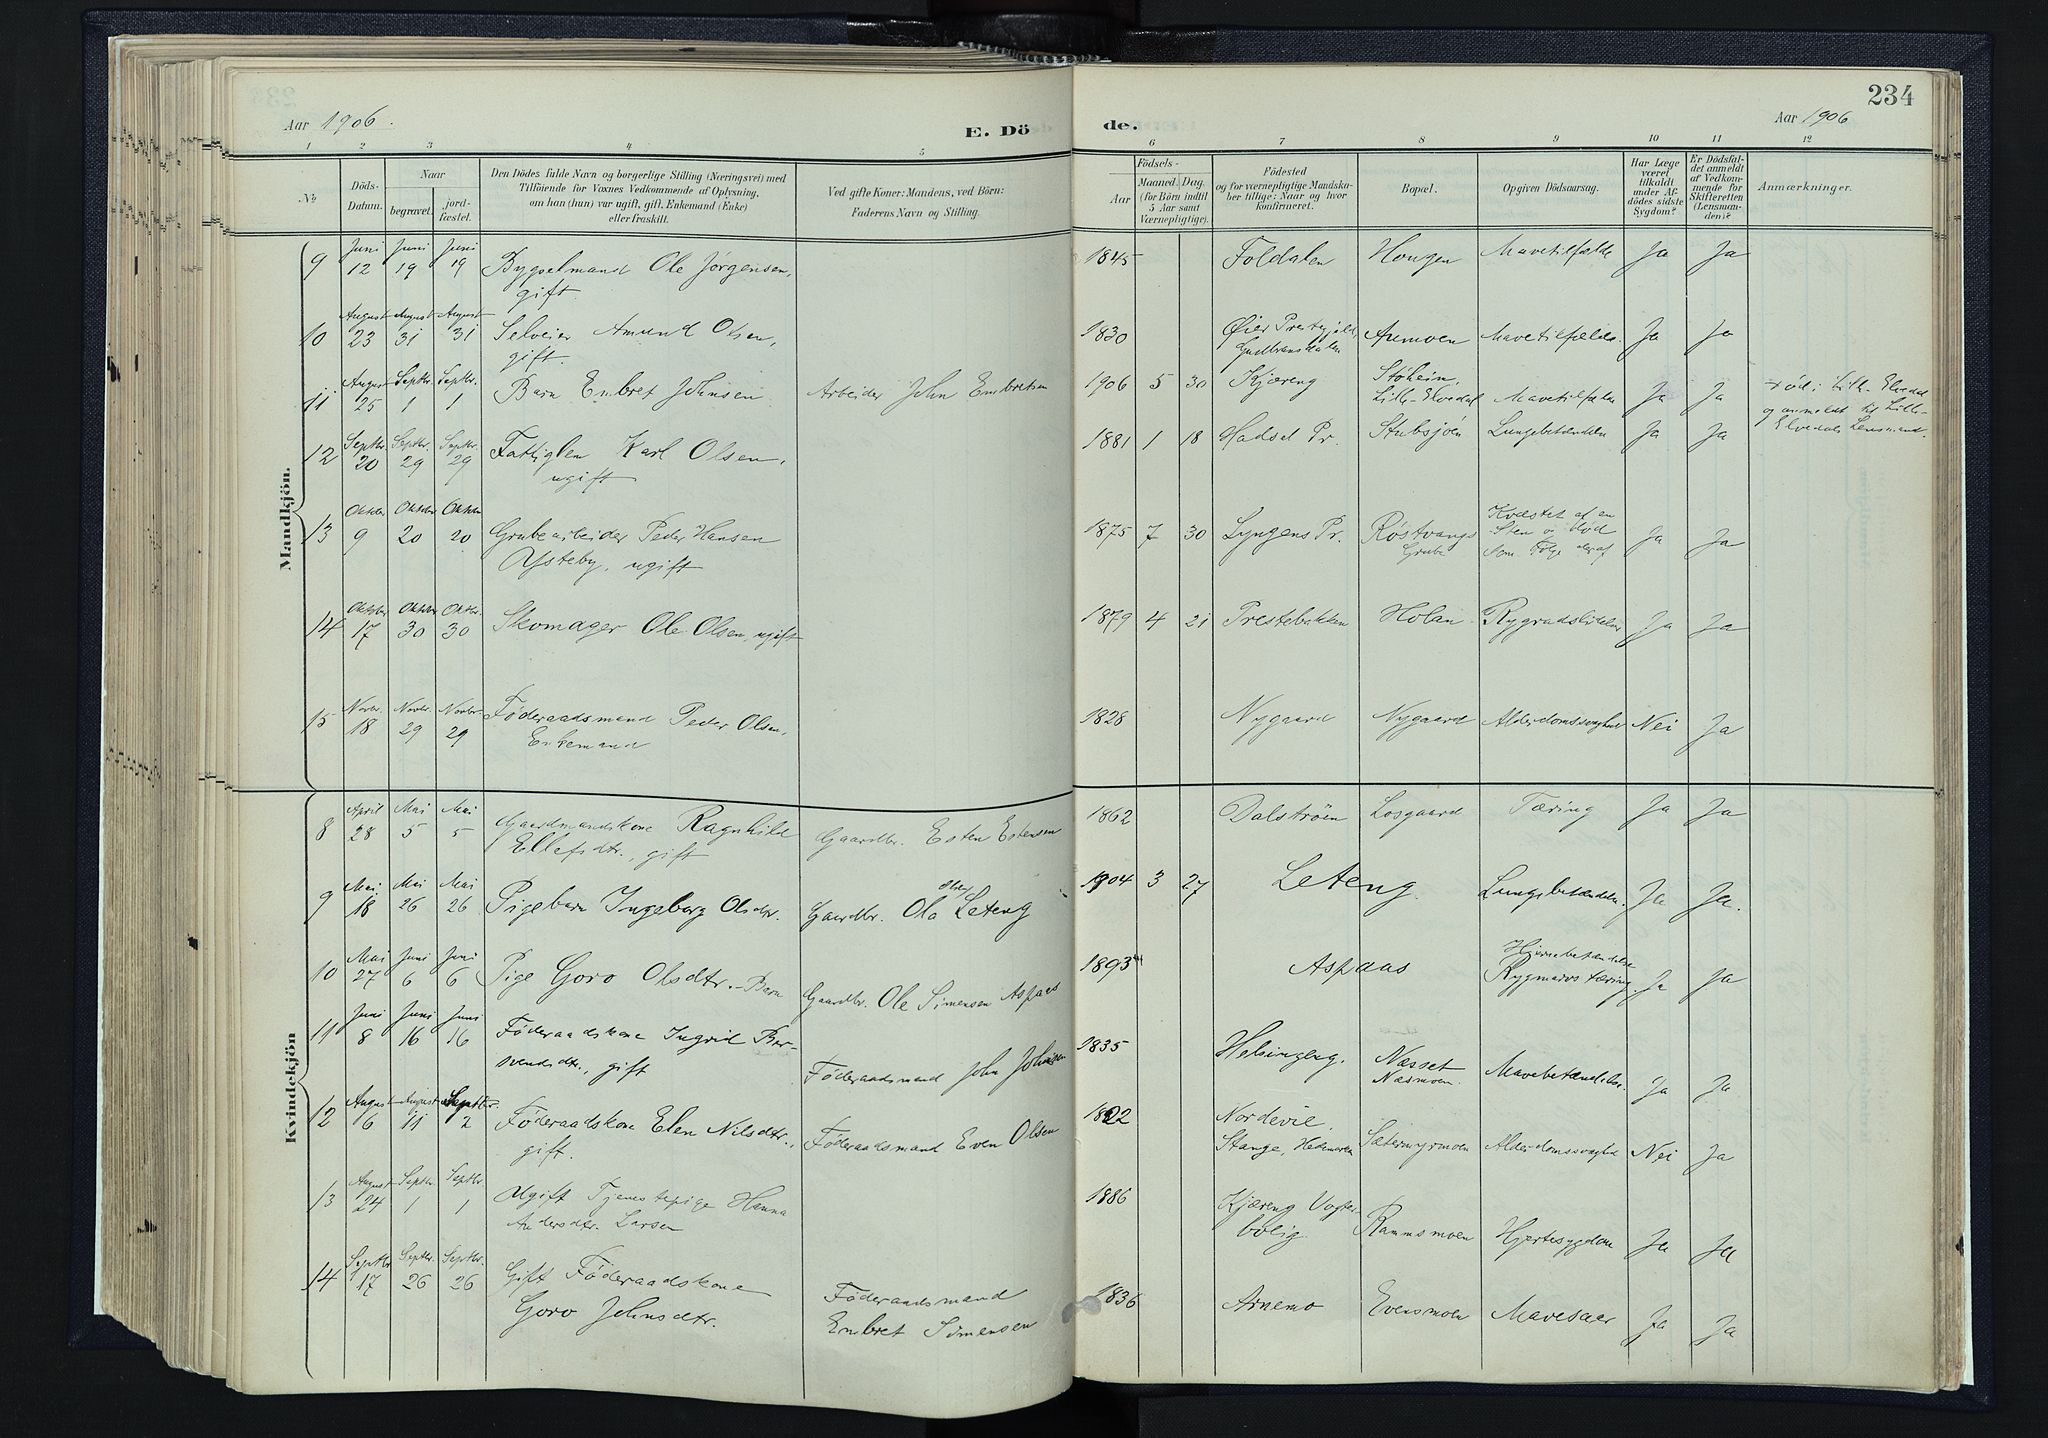 234
Aar 1906.
E. Dö
de.
Aar 1906
1 2 3 4 5 6 7 8 9 10 11 12
No
Döds-
Datum.
Naar
begravet.
jord-
fæstet.
Den Dödes fulde Navn og borgerlige Stilling (Næringsvei) med
Tilföiende for Voxnes Vedkommende af Oplysning,
om han (hun) var ugift, gift, Enkemand (Enke)
eller fraskilt.
Ved gifte Koner: Mandens, ved Börn:
Faderens Navn og Stilling.
Födsels-
Aar
Maaned. Dag.
(for Börn indtil
5 Aar samt
Værnepligtige).
Födested
og for værnepligtige Mandskа-
ber tillige: Naar og hvor
konfirmeret.
Bopæl.
Opgiven Dödsaarsag.
Har Læge
været
tilkaldt
under Af-
dödes sidste
Sygdom?
Er Dödsfal-
det anmeldt
af Vedkom-
mende for
Skifteretten
(Lensman-
den)?
Anmærkninger.
Mandkjön.
Juni Juni Juni
9 12 19 19 Bygselmand Ole Jørgensen, 1845 Foldalen Hougen Mavetilfælde Ja Ja
gift.
August August August
10 23 31 31 Selveier Amund Olsen, 1830 Øier Prestegjeld, Mavetilfælde. Ja Ja
gift. Gudbransdalen
August Septbr. Septbr.
11 25 1 1 Barn Embret Johnsen Arbeider John Embretsen 1906 5 30 Kjæreng Støheim, Mavetilfælde Ja Ja
Lille-Elvedal
død i Lille Elvedal
og anmeldt til Lille-
Elvedals Lensmand.
Septbr. Septbr. Septbr.
12 20 29 29 Fattiglem Karl Olsen, 1881 1 18 Hadsel Pr. Stubsjøen Lungebetændelse Ja Ja
ugift
Oktober Oktober Oktober
13 9 20 20 Grubearbeider Peder Hansen 1875 7 30 Lyngens Pr. Røstvangs Kvæstet af en Ja Ja
ugift Grube
Sten og død
som Følge deraf
Oktober Oktober Oktbr.
14 17 30 30 Skomager Ole Olsen, ugift 1879 4 21 Prestebakken Holan Rygradslidelse Ja Ja
Novbr. Novbr. Novbr.
15 18 29 29 Føderaadsmand Peder Olsen, 1828 Nygaard Nygaard Alderdomssvaghed Nei Ja
Enkemand
Kvindekjön
April Mai Mai
8 28 5 5 Gaardmandskone Ragnhild Gaardbr. Esten Estensen 1862 Dalstrøen Losgaard Tæring Ja Ja
Ellefsdtr., gift
Mai Mai Mai
9 18 26 26 Pigebarn Ingeborg Olsdtr. Gaardbr. Ola Olsen Leteng 1904 3 27 Leteng. Lungebetændelse. Ja Ja.
Mai Juni Juni
10 27 6 6 Pige Goro Olsdtr. - Barn Gaardbr. Ole Simensen Aspaas 1893 Aspaas Hjernebetændelse Ja Ja
Rygmarvstæring.
Juni Juni Juni
11 8 16 16 Føderaadskone Ingrid Ber- Føderaadsmand John Johnsen 1835 Helsingeng. Næsset Mavebetændelse. Ja Ja
svendsdtr., gift Næsmoen.
August August Septbr.
12 6 11 2 Føderaadskone Elen Nilsdtr., Føderaadsmand Even Olsen 1822 Nordevie. Sætermyrmoen Alderdomssvaghed Nei Ja
gift. Stange, Hedemarken
August Septbr. Septbr.
13 24 1 1 Ugift Tjenestepige Hanna 1886 Kjæreng Vogter- Ramsmoen Hjertesygdom Ja Ja
Andersdtr. Larsen bolig.
Septbr Septbr. Septbr.
14 17 26 26 Gift Føderaadskone Føderaadsmand 1836 Arnemo Evensmoen Mavesaar Ja Ja
Goro Johnsdtr. Embret Simensen